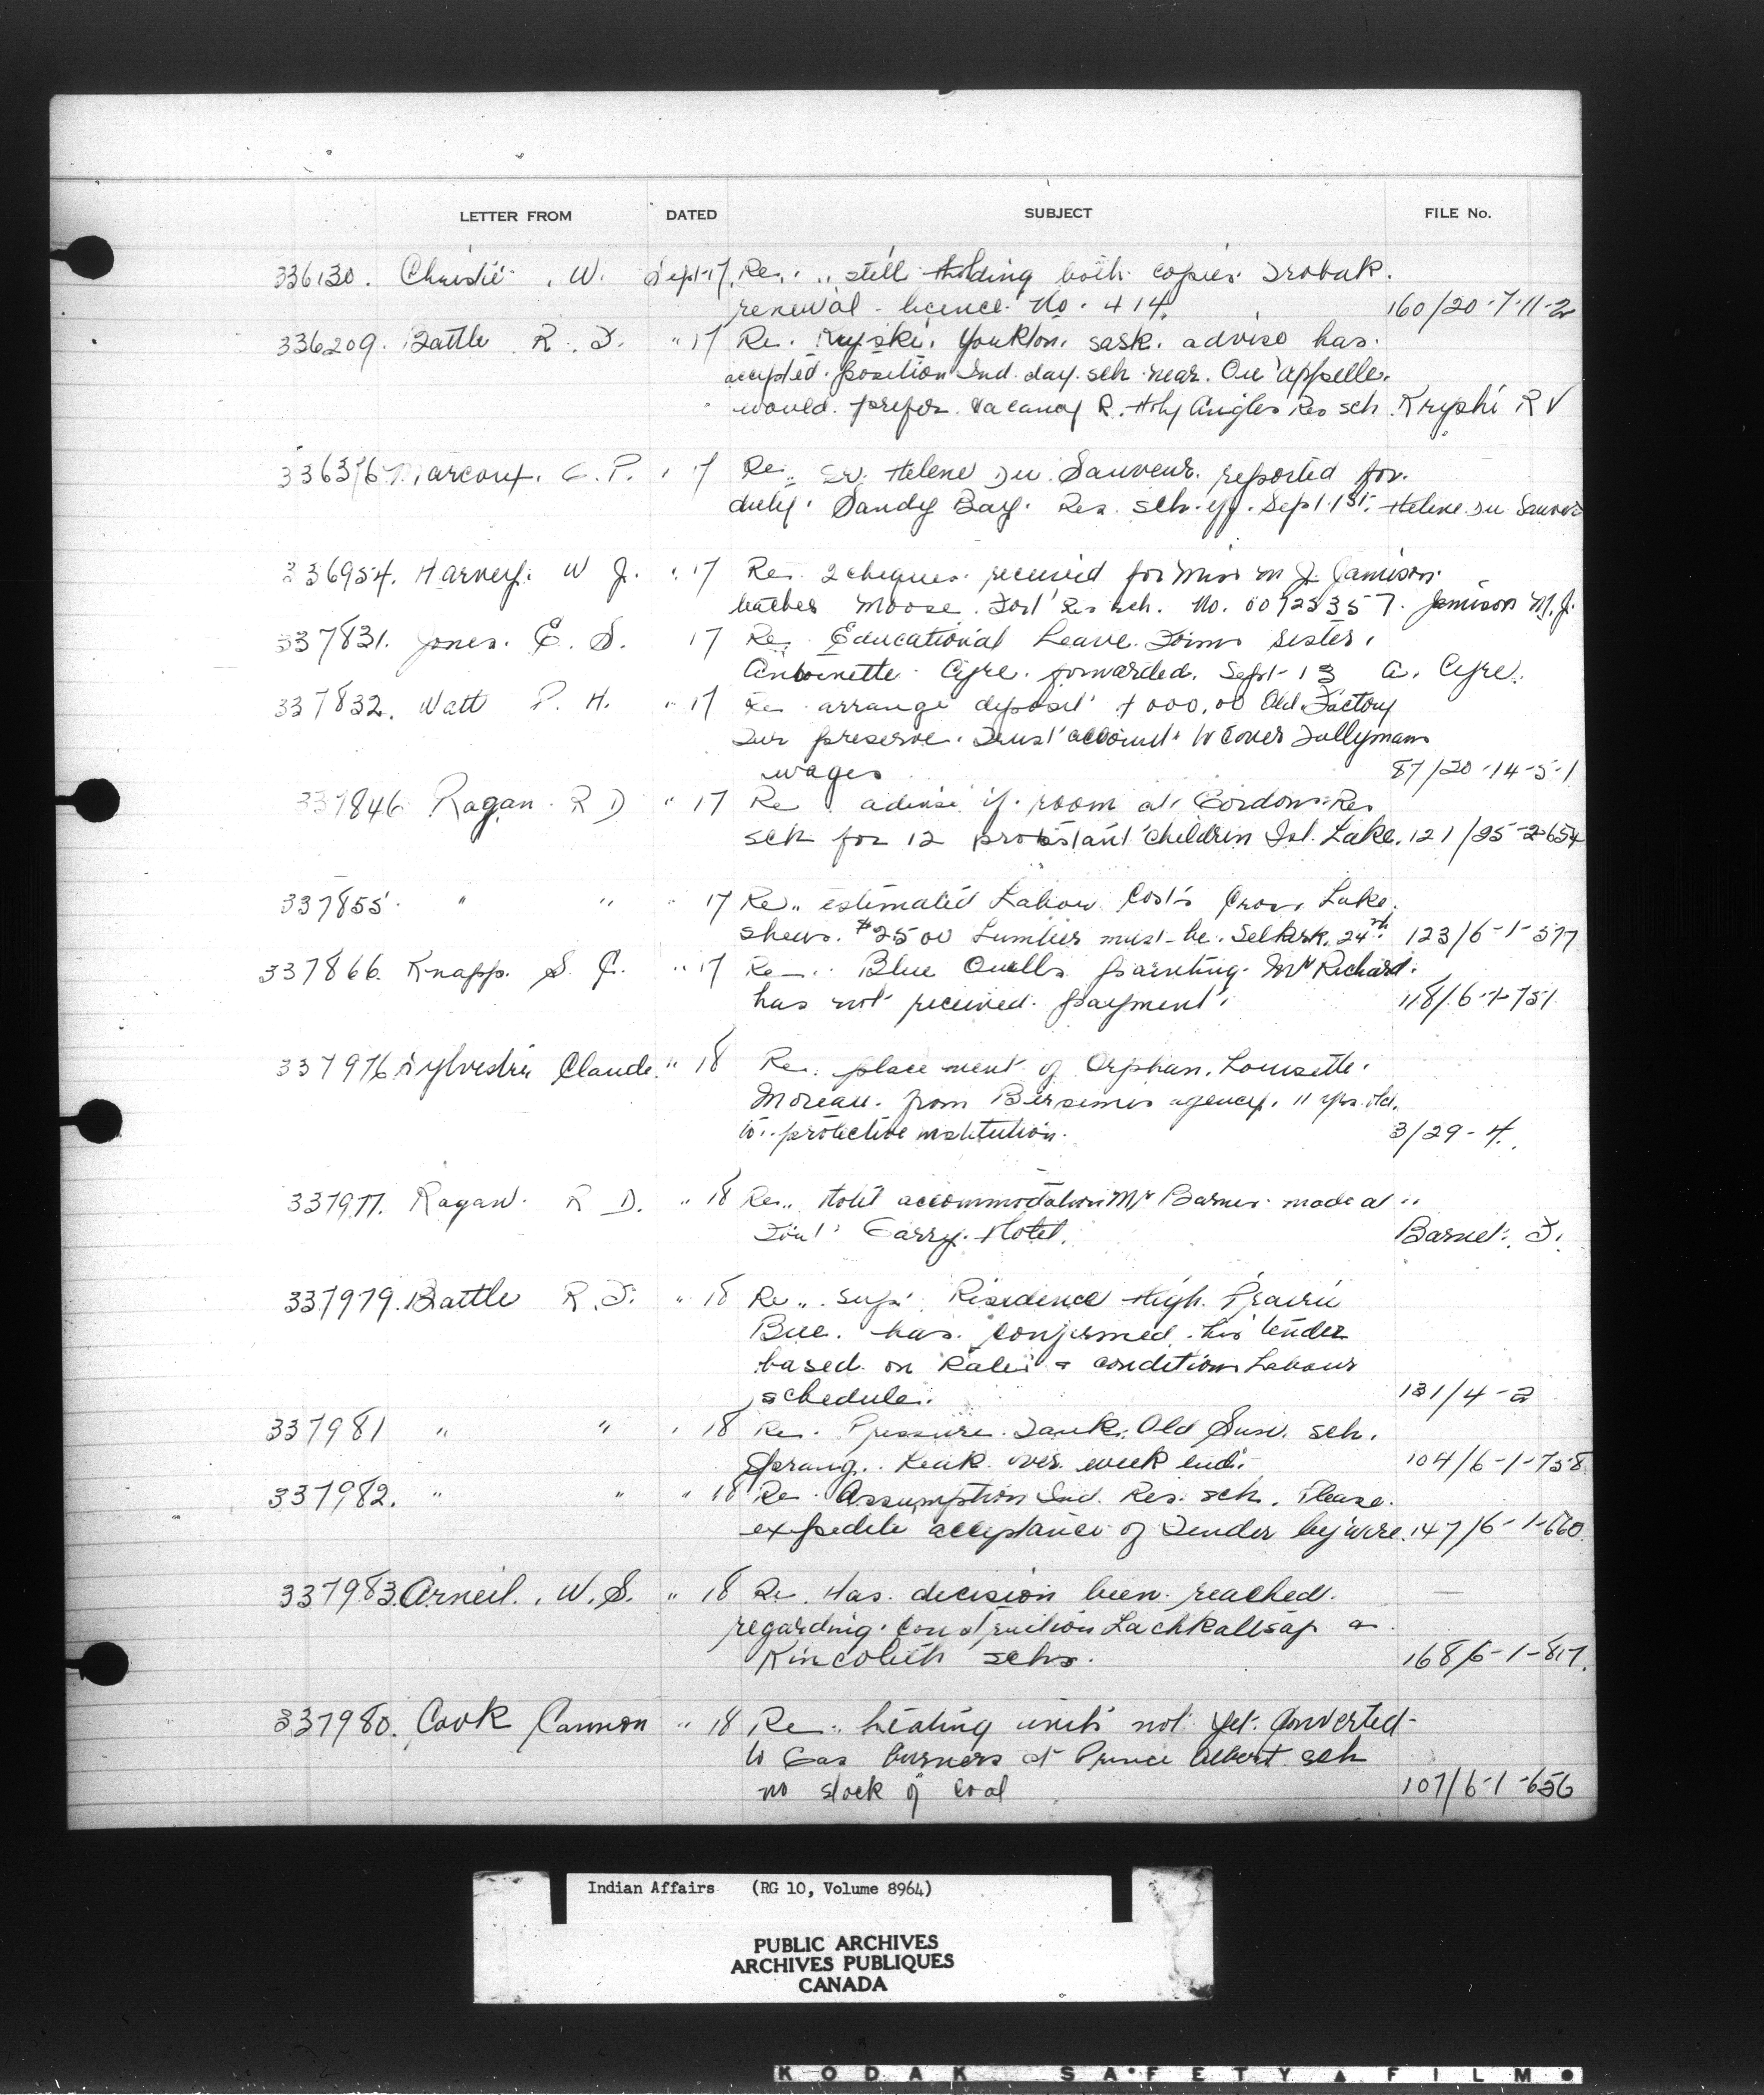 LETTER FROM DATED SUBJECT FILE No.
336130. Christie . W. Sept 17. Re. .. still holding both copies Trobak.
renewal - licence No. 414. 160/20-7-11-2
336209. Battle R. F. " 17 Re. Yorkton. Sask. advise has.
accepted position Ind. day. sch. near. Qu'appelle.
would. prefer. vacancy R. Holy Angles Res sch. R V
Marcoux. G. P. " 17 Re.. Sr. Helene Du Sauveur. reported for.
duty. Sandy Bay. Res. sch. eff. Sept. 1st. Helene Du Sauver
336954. Harvey. W J. " 17 Re. 2 cheques received for Miss M J. Jamison.
teacher Moose. Fort Res sch. No. 00725357. Jamison M. J.
337831. Jones. E. S. 17 Re. Educational Leave. Forms Sister.
Antoinette Cyre. forwarded. Sept-13 A. Cyre.
337832. Watt P. H. " 17 Re arrange deposit 000.00 Old Factory
Fur preserve. Trust account. to cover Tallymans
wages 87/20-14-5-1
337846 Ragan R D " 17 Re . advise if room at Gordons Res
sch for 12 protestant children Isl. Lake. 121/25-2-654
337855 " " " 17 Re.. estimated Labour Costs Cross Lake.
shews. $2500 Lumber must be. Selkirk. 24th. 123/6-1-577
337866. Knapp. S. C. " 17 Re.. Blue Quills painting. Mr Richard.
has not received payment. 118/6-1-751
337976 Sylvestre Claude. " 18 Re. placement of Orphan. Louisette.
Moreau. from Bersimis agency. 11 yrs. old.
to.. protective institution. 3/29-4.
337977. Ragan. R D. " 18 Re.. Hotel accommodation Mr Barnes made at ..
Fort Garry Hotel. Barnet. F.
337979. Battle R. F. " 18 Re.. Supt. Residence High. Prairie
has. confirmed. his tender
based on Rates & conditions Labour
schedule. 131/4-2
337981 " " " 18 Re. Pressure Tank. Old Sun. sch.
Sprang. Leak over week end. 104/6-1-758
337982. " " " 18 Re. Assumption Ind. Res. sch. Please.
expedite acceptance of Tender by wire. 147/6-1-660.
337983. Arneil. W. S. " 18 Re. Has. decision been reached.
regarding. construction Lachkaltsap &
Kincolith schs. 168/6-1-817.
337980. Cook Cannon " 18 Re.. heating units not yet. Converted
to Gas burners at Prince Albert sch
no stock of coal 107/6-1-656
Indian Affairs (RG 10, Volume 8964)
PUBLIC ARCHIVES
ARCHIVES PUBLIQUES
CANADA
KODAK SAFETY FILM